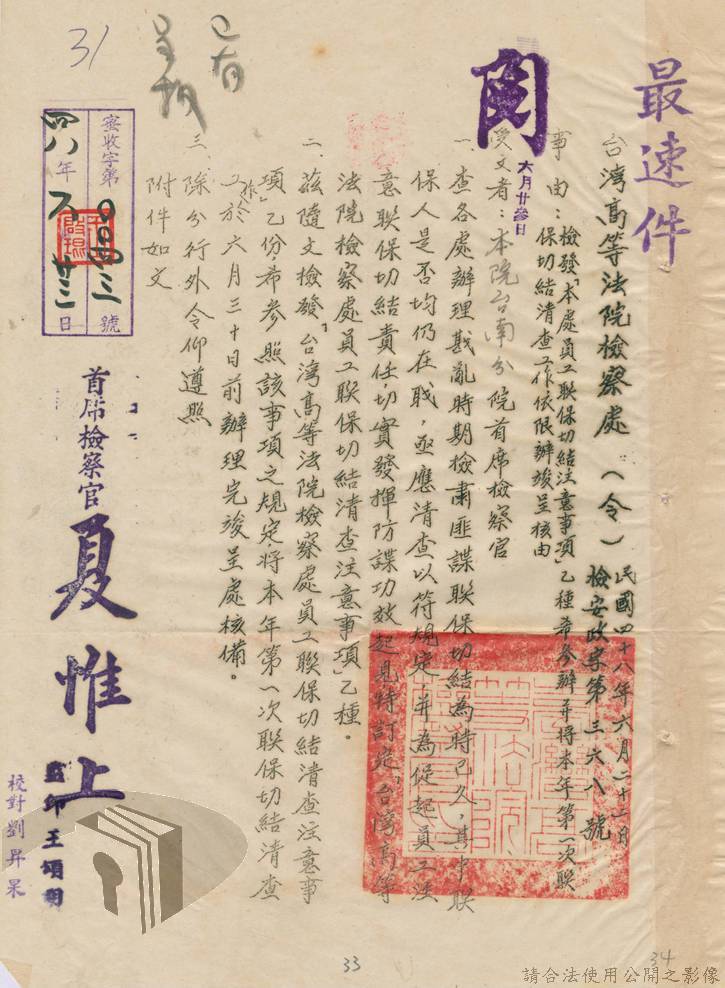 最速件
台灣高等法院檢察處(令)
民國四十八年六月二十二日
檢安政字第三六八號
事由:檢發「本處員工聯保切結注意事項」乙種希參辦并將本年第一次聯
保切結清查工作依限辦竣呈核由
閱
六月廿參日
受文者:本院台南分院首席檢察官
一、查各處辦理戡亂時期檢肅匪諜聯保切結為時已久,其中聯
保人是否均仍在職,亟應清查以符規定,并為促起員工注
意聯保切結責任,切實發揮防諜功效起見特訂定「台灣高等
法院檢察處員工聯保切結清查注意事項」乙種。
二、茲隨文檢發「台灣高等法院檢察處員工聯保切結清查注意事
項」乙份,希參照該事項之規定將本年第一次聯保切結清查
工作於六月三十日前辦理完竣呈處核備。
三、除分行外令仰遵照
附件如文
首席檢察官 夏惟上
監印王頌明
校對劉昇杲
密收字第〇〇四三號
四八年六月廿三日
已有
31
33
34
請合法使用公開之影像